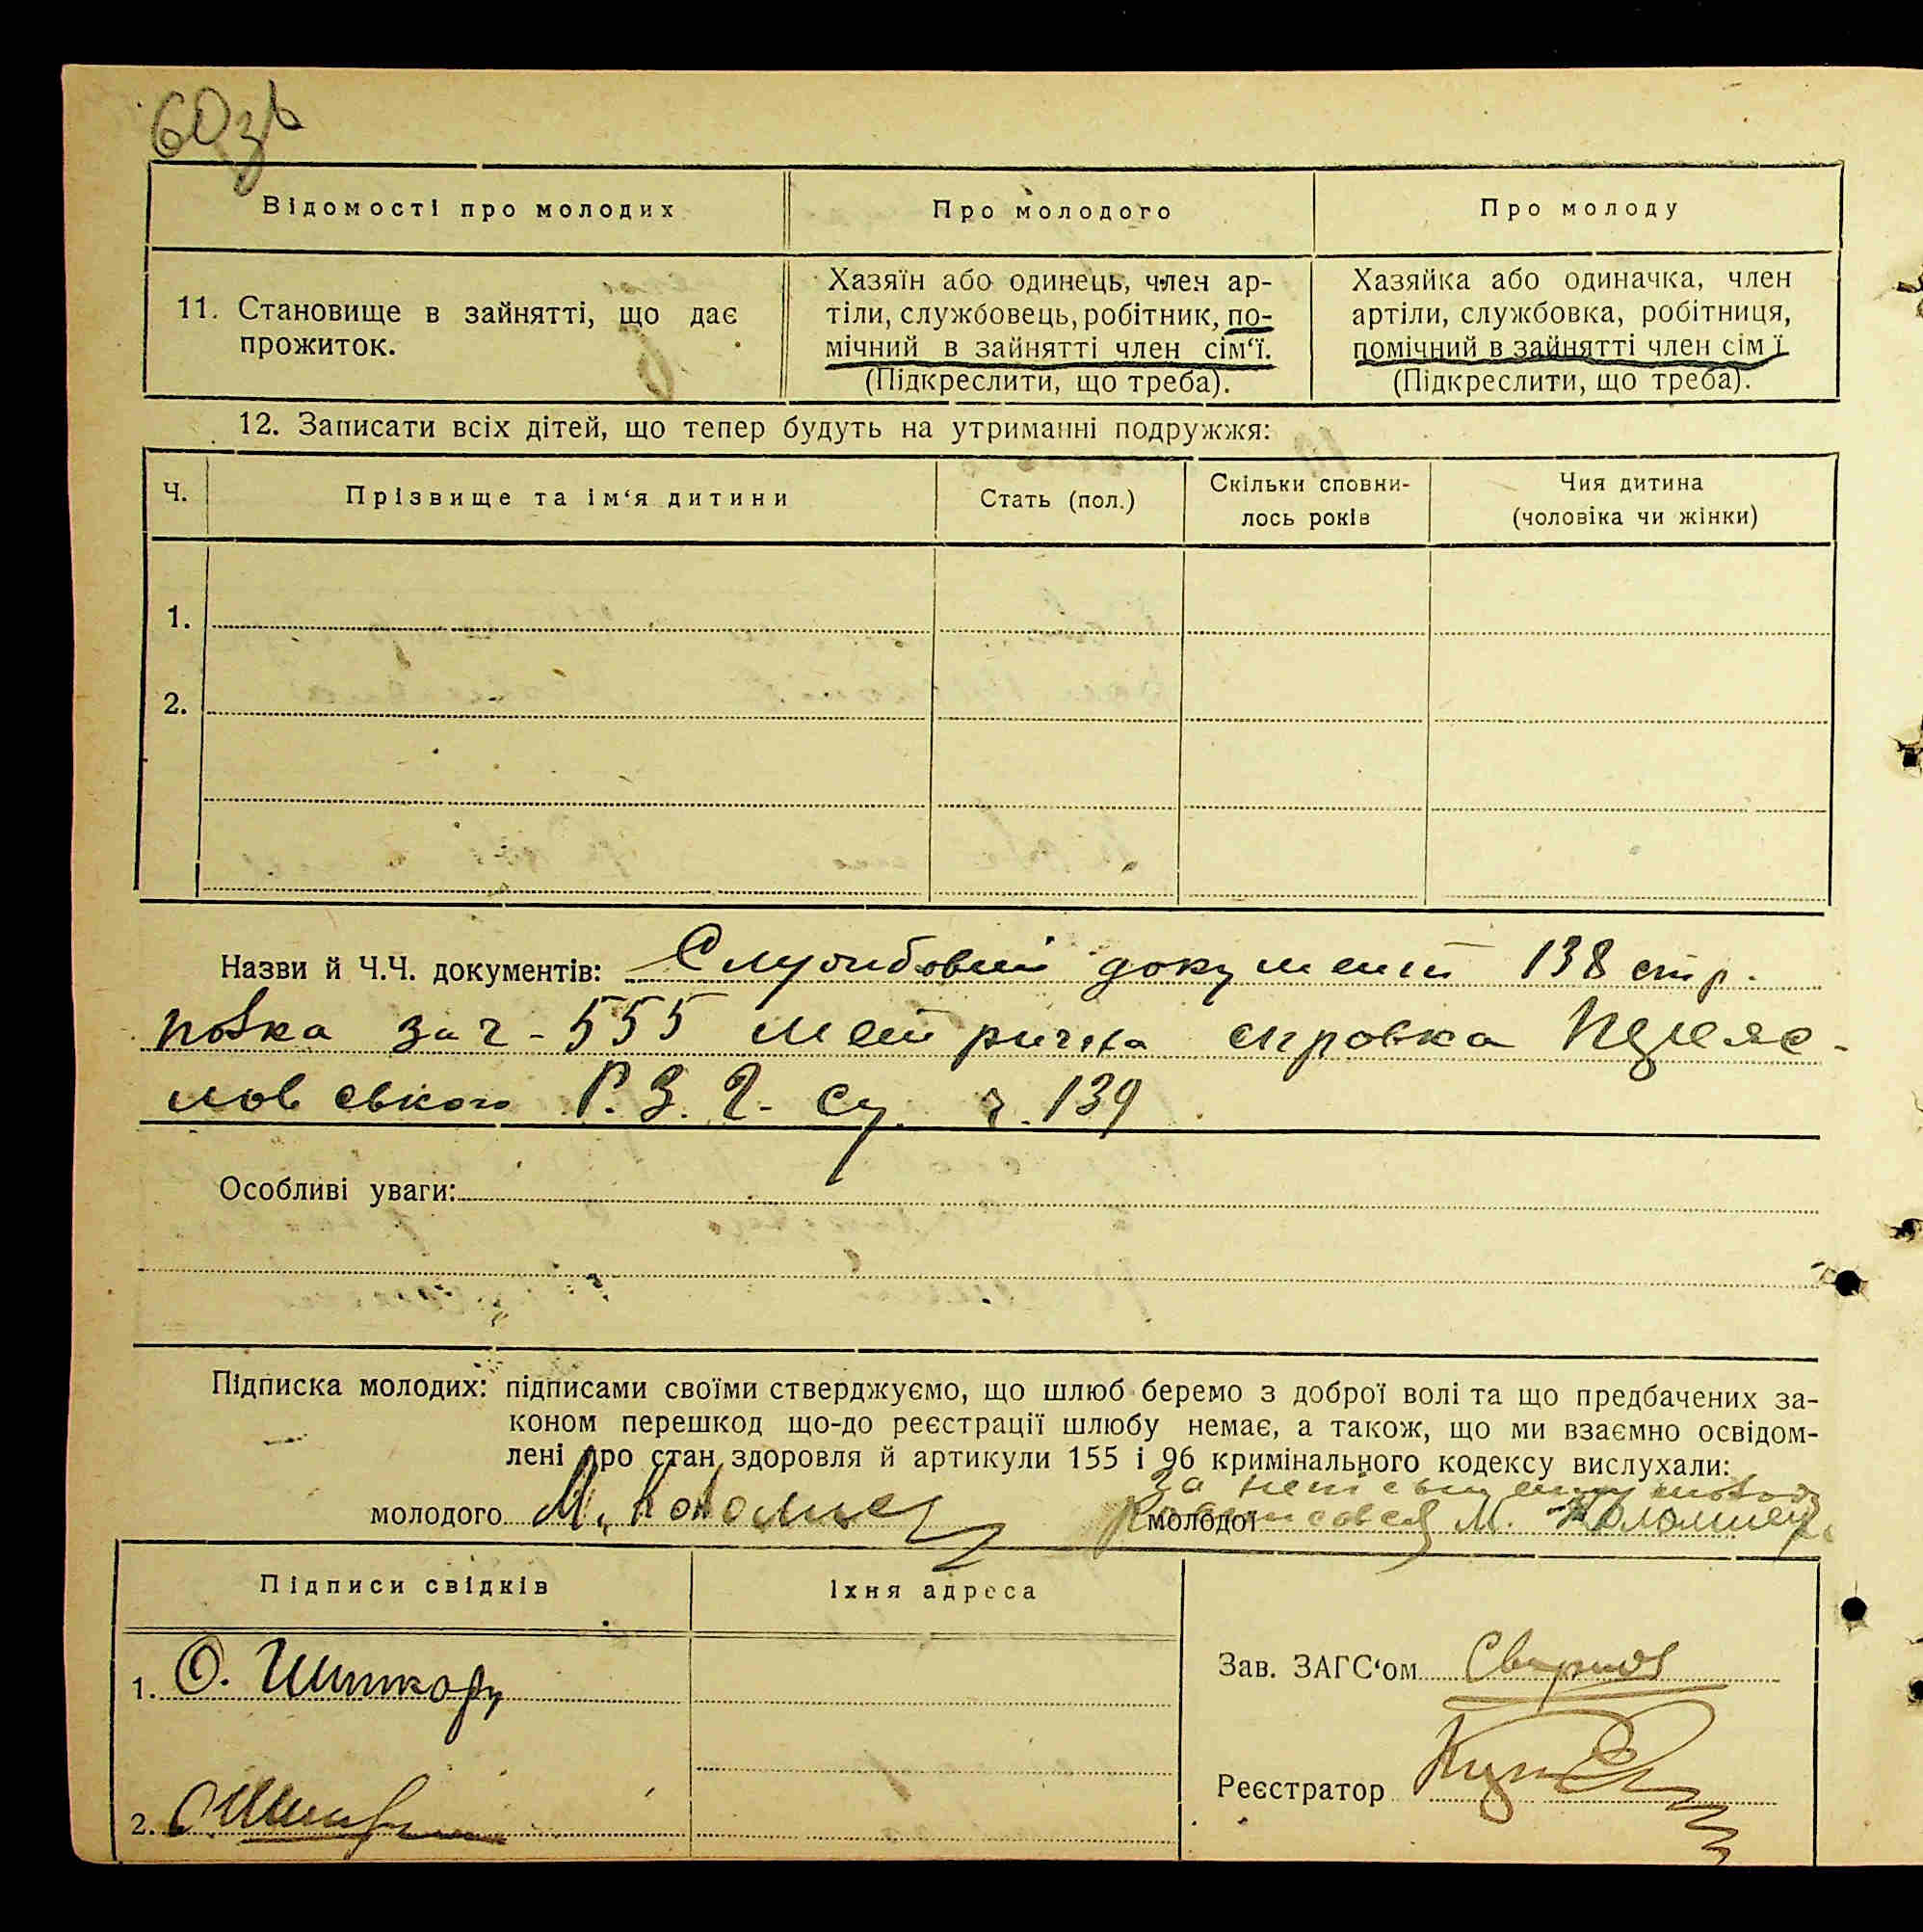 60 зв
Відомості про молодих
Про молодого
Про молоду
11. Становище в зайнятті, що дає
прожиток.
Хазяїн або одинець, член ар-
тіли, службовець, робітник, по-
мічний в зайнятті член сім‘ї.
(Підкреслити, що треба).
Хазяйка або одиначка, член
артіли, службовка, робітниця,
помічний в зайнятті член сім ї
(Підкреслити, що треба).
12. Записати всіх дітей, що тепер будуть на утриманні подружжя:
Ч.
Прізвище та ім‘я дитини
Стать (пол.)
Скільки сповни-
лось років
Чия дитина
(чоловіка чи жінки)
1.
2.
Назви й Ч.Ч. документів: Службовий документ 138 стр.
за ч - 555 метрична справка
Р. З. Г. ч. 139
Особливі уваги:
Підписка молодих: підписами своїми стверджуємо, що шлюб беремо з доброї волі та що предбачених за-
коном перешкод що-до реєстрації шлюбу немає, а також, що ми взаємно освідом-
лені про стан здоровля й артикули 155 і 96 кримінального кодексу вислухали:
за
молодого М. Коломиец молодої М. Коломиец
Підписи свідків
Їхня адреса
1. О.
2.
Зав. ЗАГС‘ом
Реєстратор